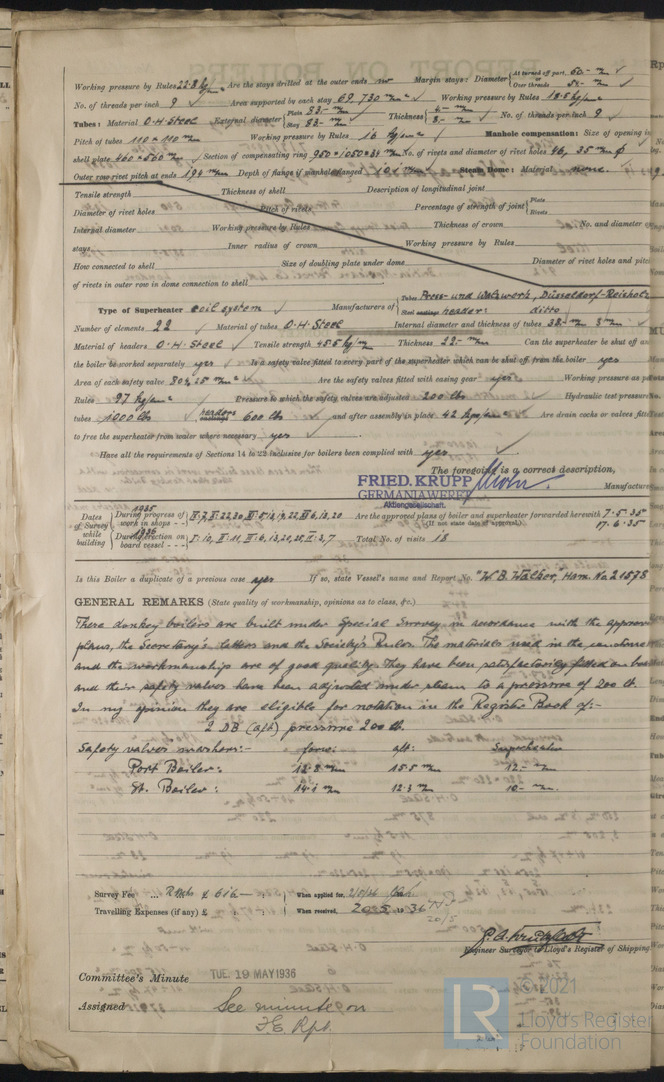 Working pressure by Rules 22.8 kg/cm² Are the stays drilled at the outer ends no Margin stays: Diameter { At turned off part, 60 mm or Over threads
No. of threads per inch 9 Area supported by each stay 69730 mm² Working pressure by Rules 18.5 kg/cm²
Tubes: Material O.H. Steel External diameter { Plain 83 mm Stay 83 mm Thickness { No. of threads per inch 9
Pitch of tubes 110 × 110 mm Working pressure by Rules 16 kg/cm² Manhole compensation: Size of opening in
shell plate 460 × 560 mm Section of compensating ring No. of rivets and diameter of rivet holes 46, 35 mm φ
Outer row rivet pitch at ends 194 mm Depth of flange if manhole flanged Steam Dome: Material none
Tensile strength Thickness of shell Description of longitudinal joint
Diameter of rivet holes Pitch of rivets Percentage of strength of joint { Plate Rivets
Internal diameter Working pressure by Rules Thickness of crown No. and diameter of
stays Inner radius of crown Working pressure by Rules
How connected to shell Size of doubling plate under dome Diameter of rivet holes and pitch
of rivets in outer row in dome connection to shell
Type of Superheater coil system Manufacturers of { Tubes Press- und Walzwerk, Düsseldorf-Reisholz Steel headers ditto
Number of elements 22 Material of tubes O.H. Steel Internal diameter and thickness of tubes 32 mm 3 mm
Material of headers O.H. Steel Tensile strength Thickness 22 mm Can the superheater be shut off and
the boiler be worked separately yes Is a safety valve fitted to every part of the superheater which can be shut off from the boiler yes
Area of each safety valve Are the safety valves fitted with easing gear yes Working pressure as per
Rules Pressure to which the safety valves are adjusted 200 lbs Hydraulic test pressure
tubes 1000 lbs headers castings 600 lbs and after assembly in place 42 kgs/cm² Are drain cocks or valves fitted
to free the superheater from water where necessary yes
Have all the requirements of Sections 14 to 22 inclusive for boilers been complied with yes
The foregoing is a correct description,
FRIED. KRUPP
GERMANIAWERFT Manufacturer
Aktiengesellschaft.
Dates of Survey while building { During progress of work in shops 1935 Are the approved plans of boiler and superheater forwarded herewith 7.5.35
(If not state date of approval.) 17.6.35
During erection on board vessel 1936 Total No. of visits 18
Is this Boiler a duplicate of a previous case yes If so, state Vessel's name and Report No. "W. B. Walker," Ham. No. 21578
GENERAL REMARKS (State quality of workmanship, opinions as to class, &c.)
These donkey boilers are built under Special Survey in accordance with the approved
plans, the Secretary's letters and the Society's Rules. The materials used in the construction
and the workmanship are of good quality. They have been satisfactorily fitted on board
and their safety valves have been adjusted under steam to a pressure of 200 lb.
In my opinion they are eligible for notation in the Register Book of:-
2 DB (aft) pressure 200 lb.
Safety valves washers:- forw: aft: Superheater
Port Boiler: 12.8 mm 15.5 mm 12.- mm
St. Boiler: 14.1 mm 12.3 mm 10.- mm.
Survey Fee ... £ When applied for,
Travelling Expenses (if any) £ When received, 20.5.1936
20/5
Engineer Surveyor to Lloyd's Register of Shipping
Committee's Minute TUE 19 MAY 1936
Assigned See minute on
F.E. Rpt.
© 2021
Lloyd's Register
Foundation
LR